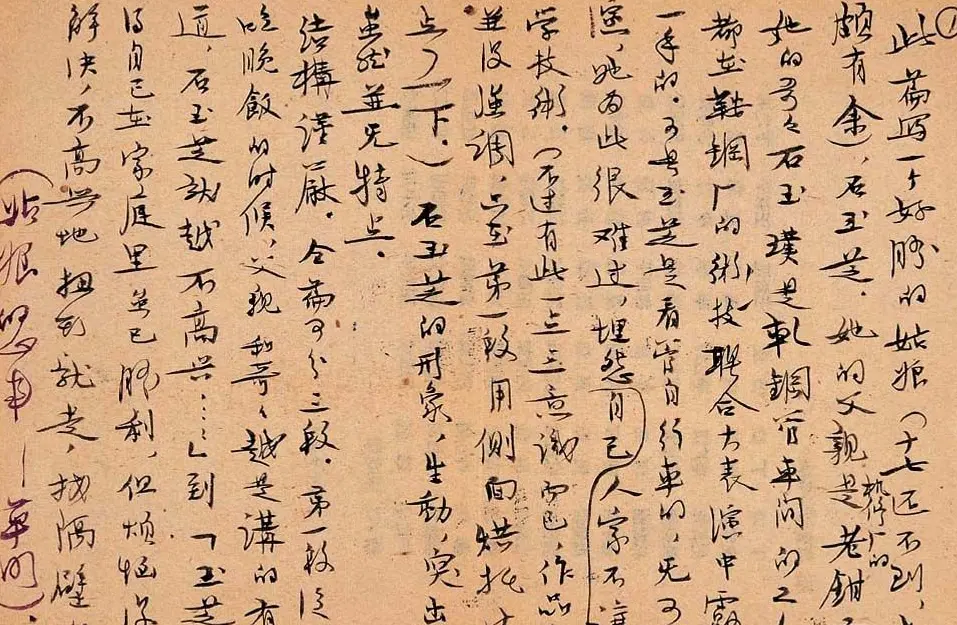 ①
此篇写一个好胜的姑娘（十七还不到，
颇有余），石玉芝。她的父亲是老钳
机修厂的
她的哥哥石玉璞是轧钢车间的工
都在鞍钢厂的术技联合大表演中露
一手的。可是玉芝是看管自行车的，无可
演，她为此很难过，埋怨自己人家不
学技术。（不过有此一点点意识而已，作品
并没强调，只在第一段用侧面烘托
点了一下。）石玉芝的形象，生动，突出
虽然並无特点。
结构谨严。全篇可分三段。第一段从
吃晚飯的时候，父親和哥哥越是講的有
道，石玉芝就越不高兴……」到「玉芝
得自己在家庭里無已勝利，但烦恼
解决，不高兴地扭到就走，找隔壁
（姑娘的心事——草明）